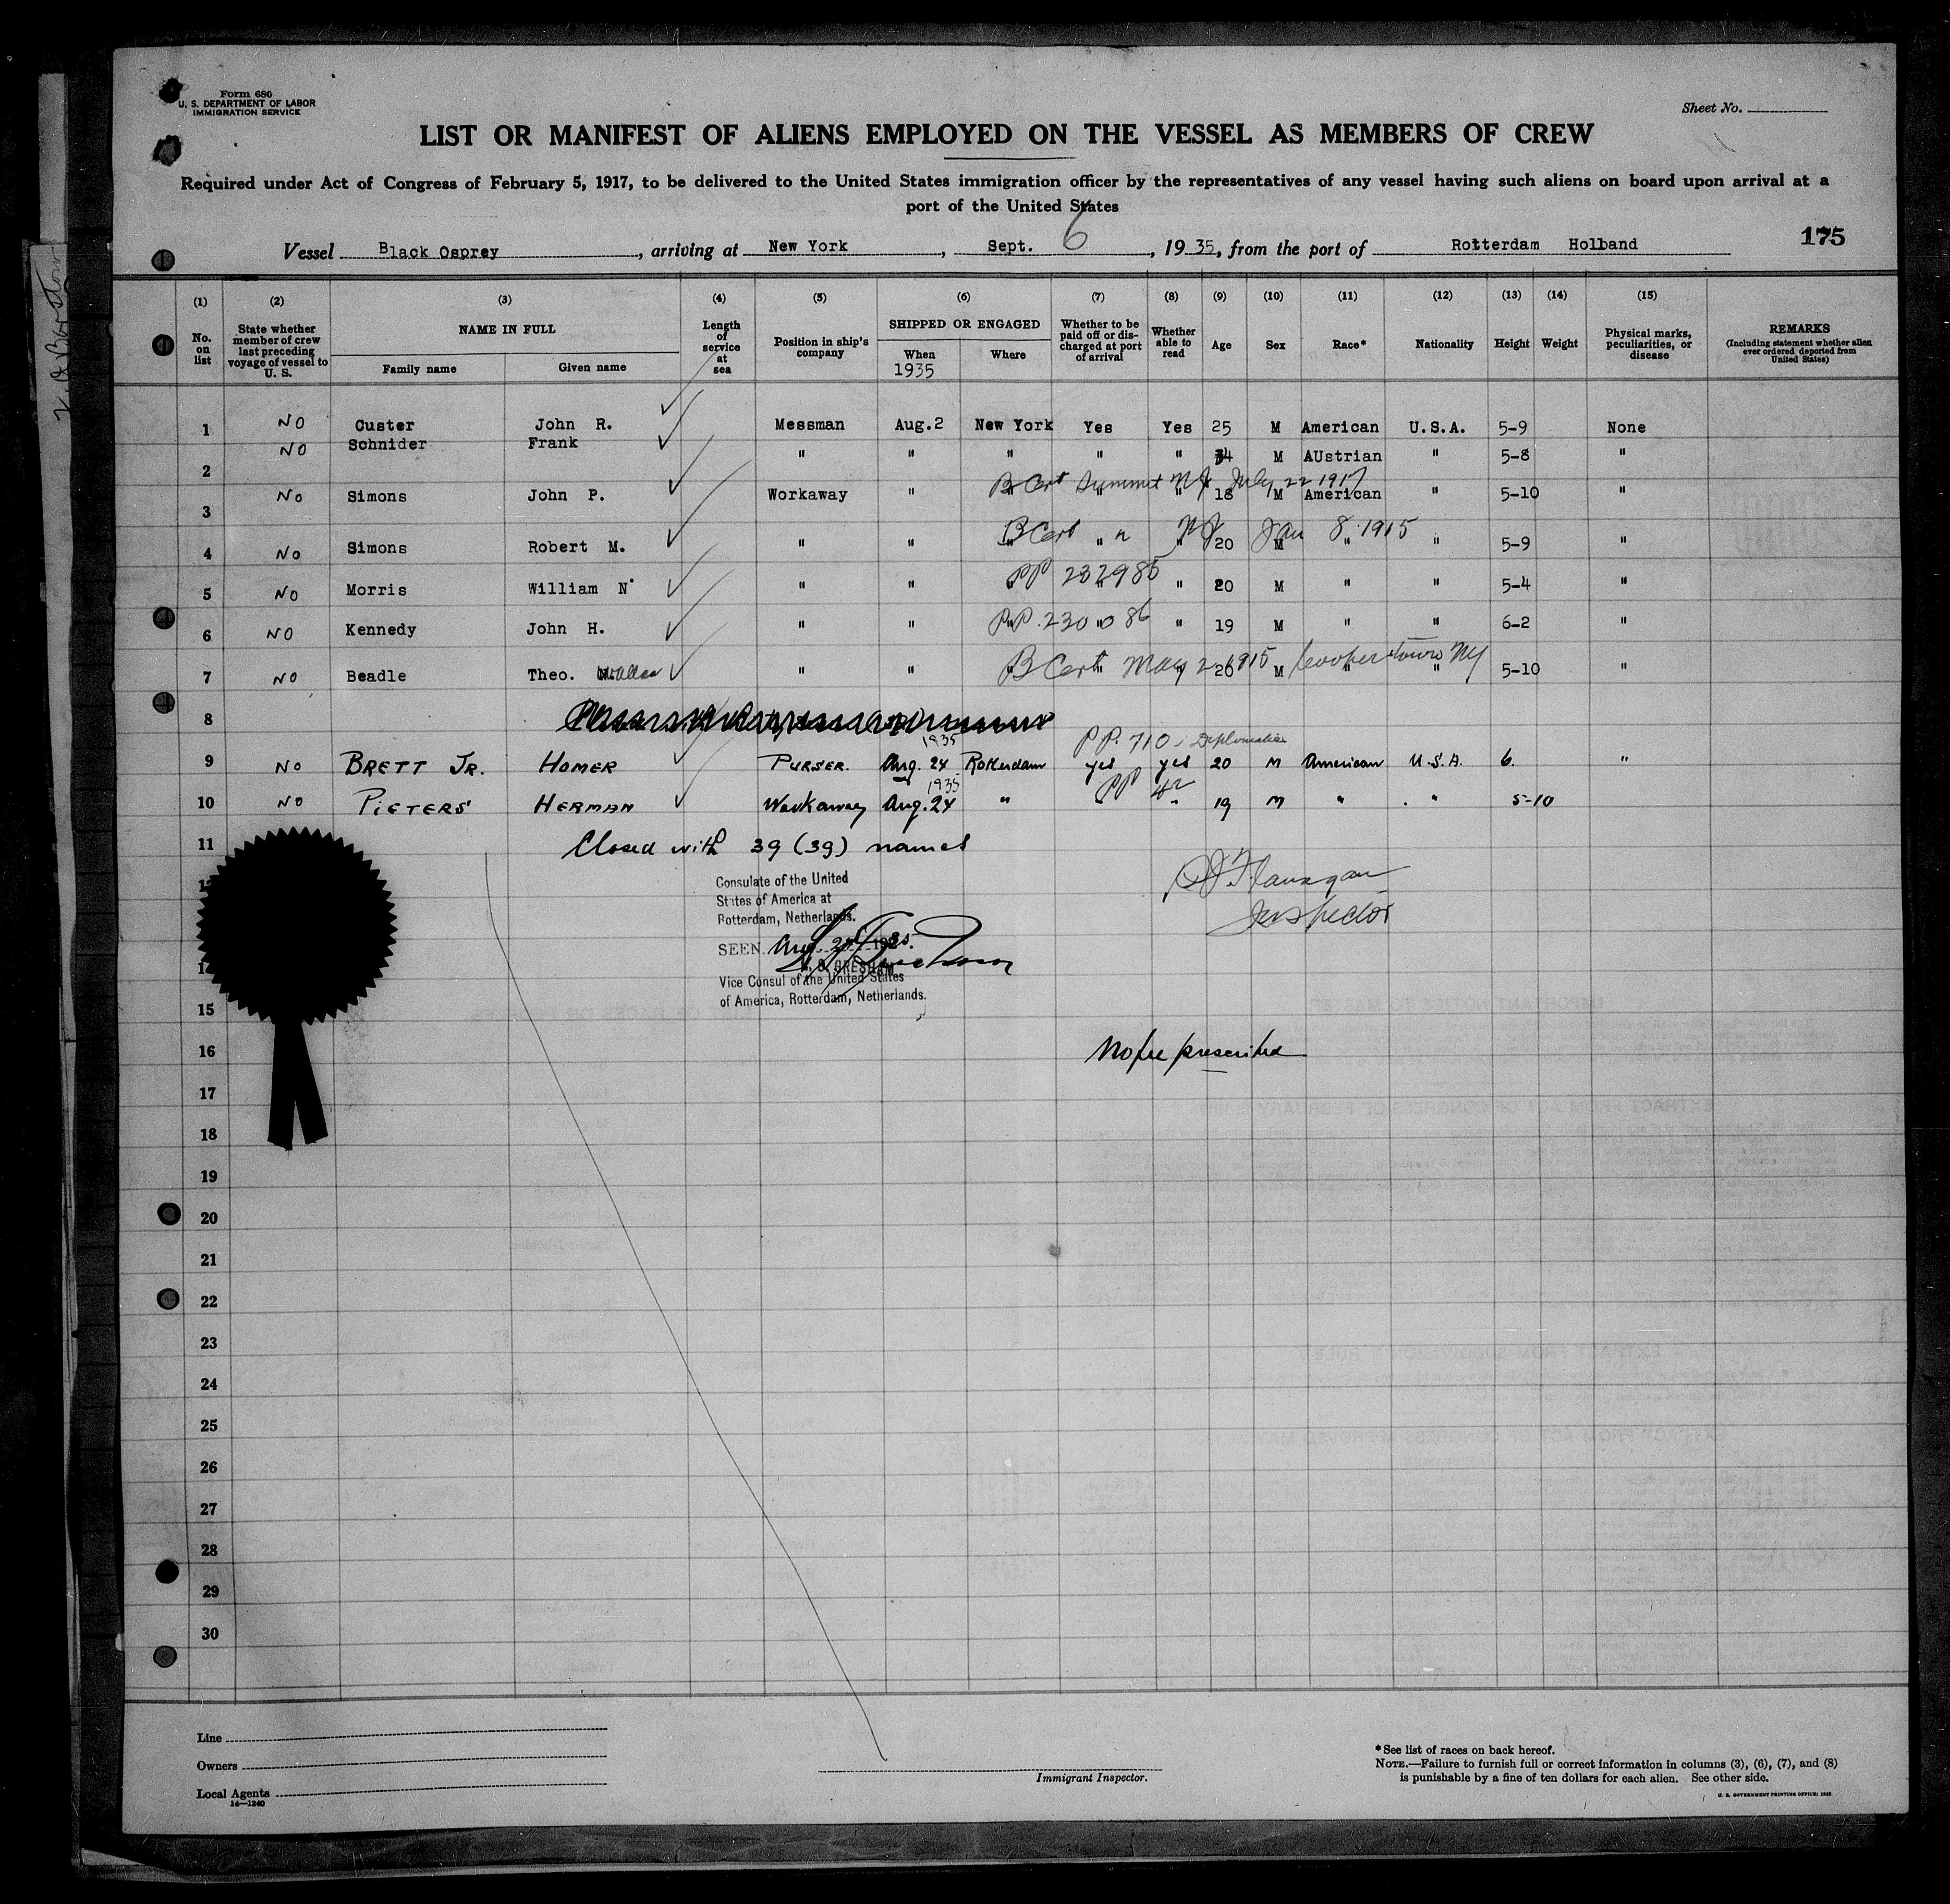 Form 680
U. S. DEPARTMENT OF LABOR
IMMIGRATION SERVICE
Sheet No.
LIST OR MANIFEST OF ALIENS EMPLOYED ON THE VESSEL AS MEMBERS OF CREW
Required under Act of Congress of February 5, 1917, to be delivered to the United States immigration officer by the representatives of any vessel having such aliens on board upon arrival at a
port of the United States
Vessel Black Osprey, arriving at New York, Sept. 6, 1935, from the port of Rotterdam Holband 175
(1) (2) (3) (4) (5) (6) (7) (8) (9) (10) (11) (12) (13) (14) (15)
No. on list
State whether member of crew last preceding voyage of vessel to U. S.
NAME IN FULL
Family name
Given name
Length of service at sea
Position in ship's company
SHIPPED OR ENGAGED
When
1935
Where
Whether to be paid off or discharged at port of arrival
Whether able to read
Age
Sex
Race*
Nationality
Height
Weight
Physical marks, peculiarities, or disease
REMARKS
(Including statement whether alien ever ordered deported from United States)
1 NO Custer John R. Messman Aug.2 New York Yes Yes 25 M American U.S.A. 5-9 None
2 NO Schnider Frank " " " " " 34 M AUstrian " 5-8 "
B Cert Summit NJ July 22 1917
3 No Simons John P. Workaway " " " " 18 M American " 5-10 "
B Cert " NJ Jan 8 1915
4 No Simons Robert M. " " " " " 20 M " " 5-9 "
PP 232985
5 NO Morris William N " " " " " 20 M " " 5-4 "
P.P. 230086
6 NO Kennedy John H. " " " " " 19 M " " 6-2 "
B Cert May 2 1915 Cooperstown NY
7 NO Beadle Theo. " " " " " 20 M " " 5-10 "
8
PP. 710 - Diplomatic
9 No BRETT JR. HOMER PURSER. Aug. 24 1935 Rotterdam yes yes 20 M American U.S.A. 6. "
PP 42
10 NO PIETERS HERMAN Workaway Aug. 24 1935 " " " 19 M " " 5-10
11 Closed with 39 (39) names
Flanagan
Inspector
Consulate of the United
States of America at
Rotterdam, Netherlands.
SEEN Aug.
Vice Consul of the United States
of America, Rotterdam, Netherlands.
15
16 No fee prescribed
17
18
19
20
21
22
23
24
25
26
27
28
29
30
Line
Owners
Local Agents
14—1240
Immigrant Inspector.
*See list of races on back hereof.
NOTE.—Failure to furnish full or correct information in columns (3), (6), (7), and (8)
is punishable by a fine of ten dollars for each alien. See other side.
U. S. GOVERNMENT PRINTING OFFICE: 1932